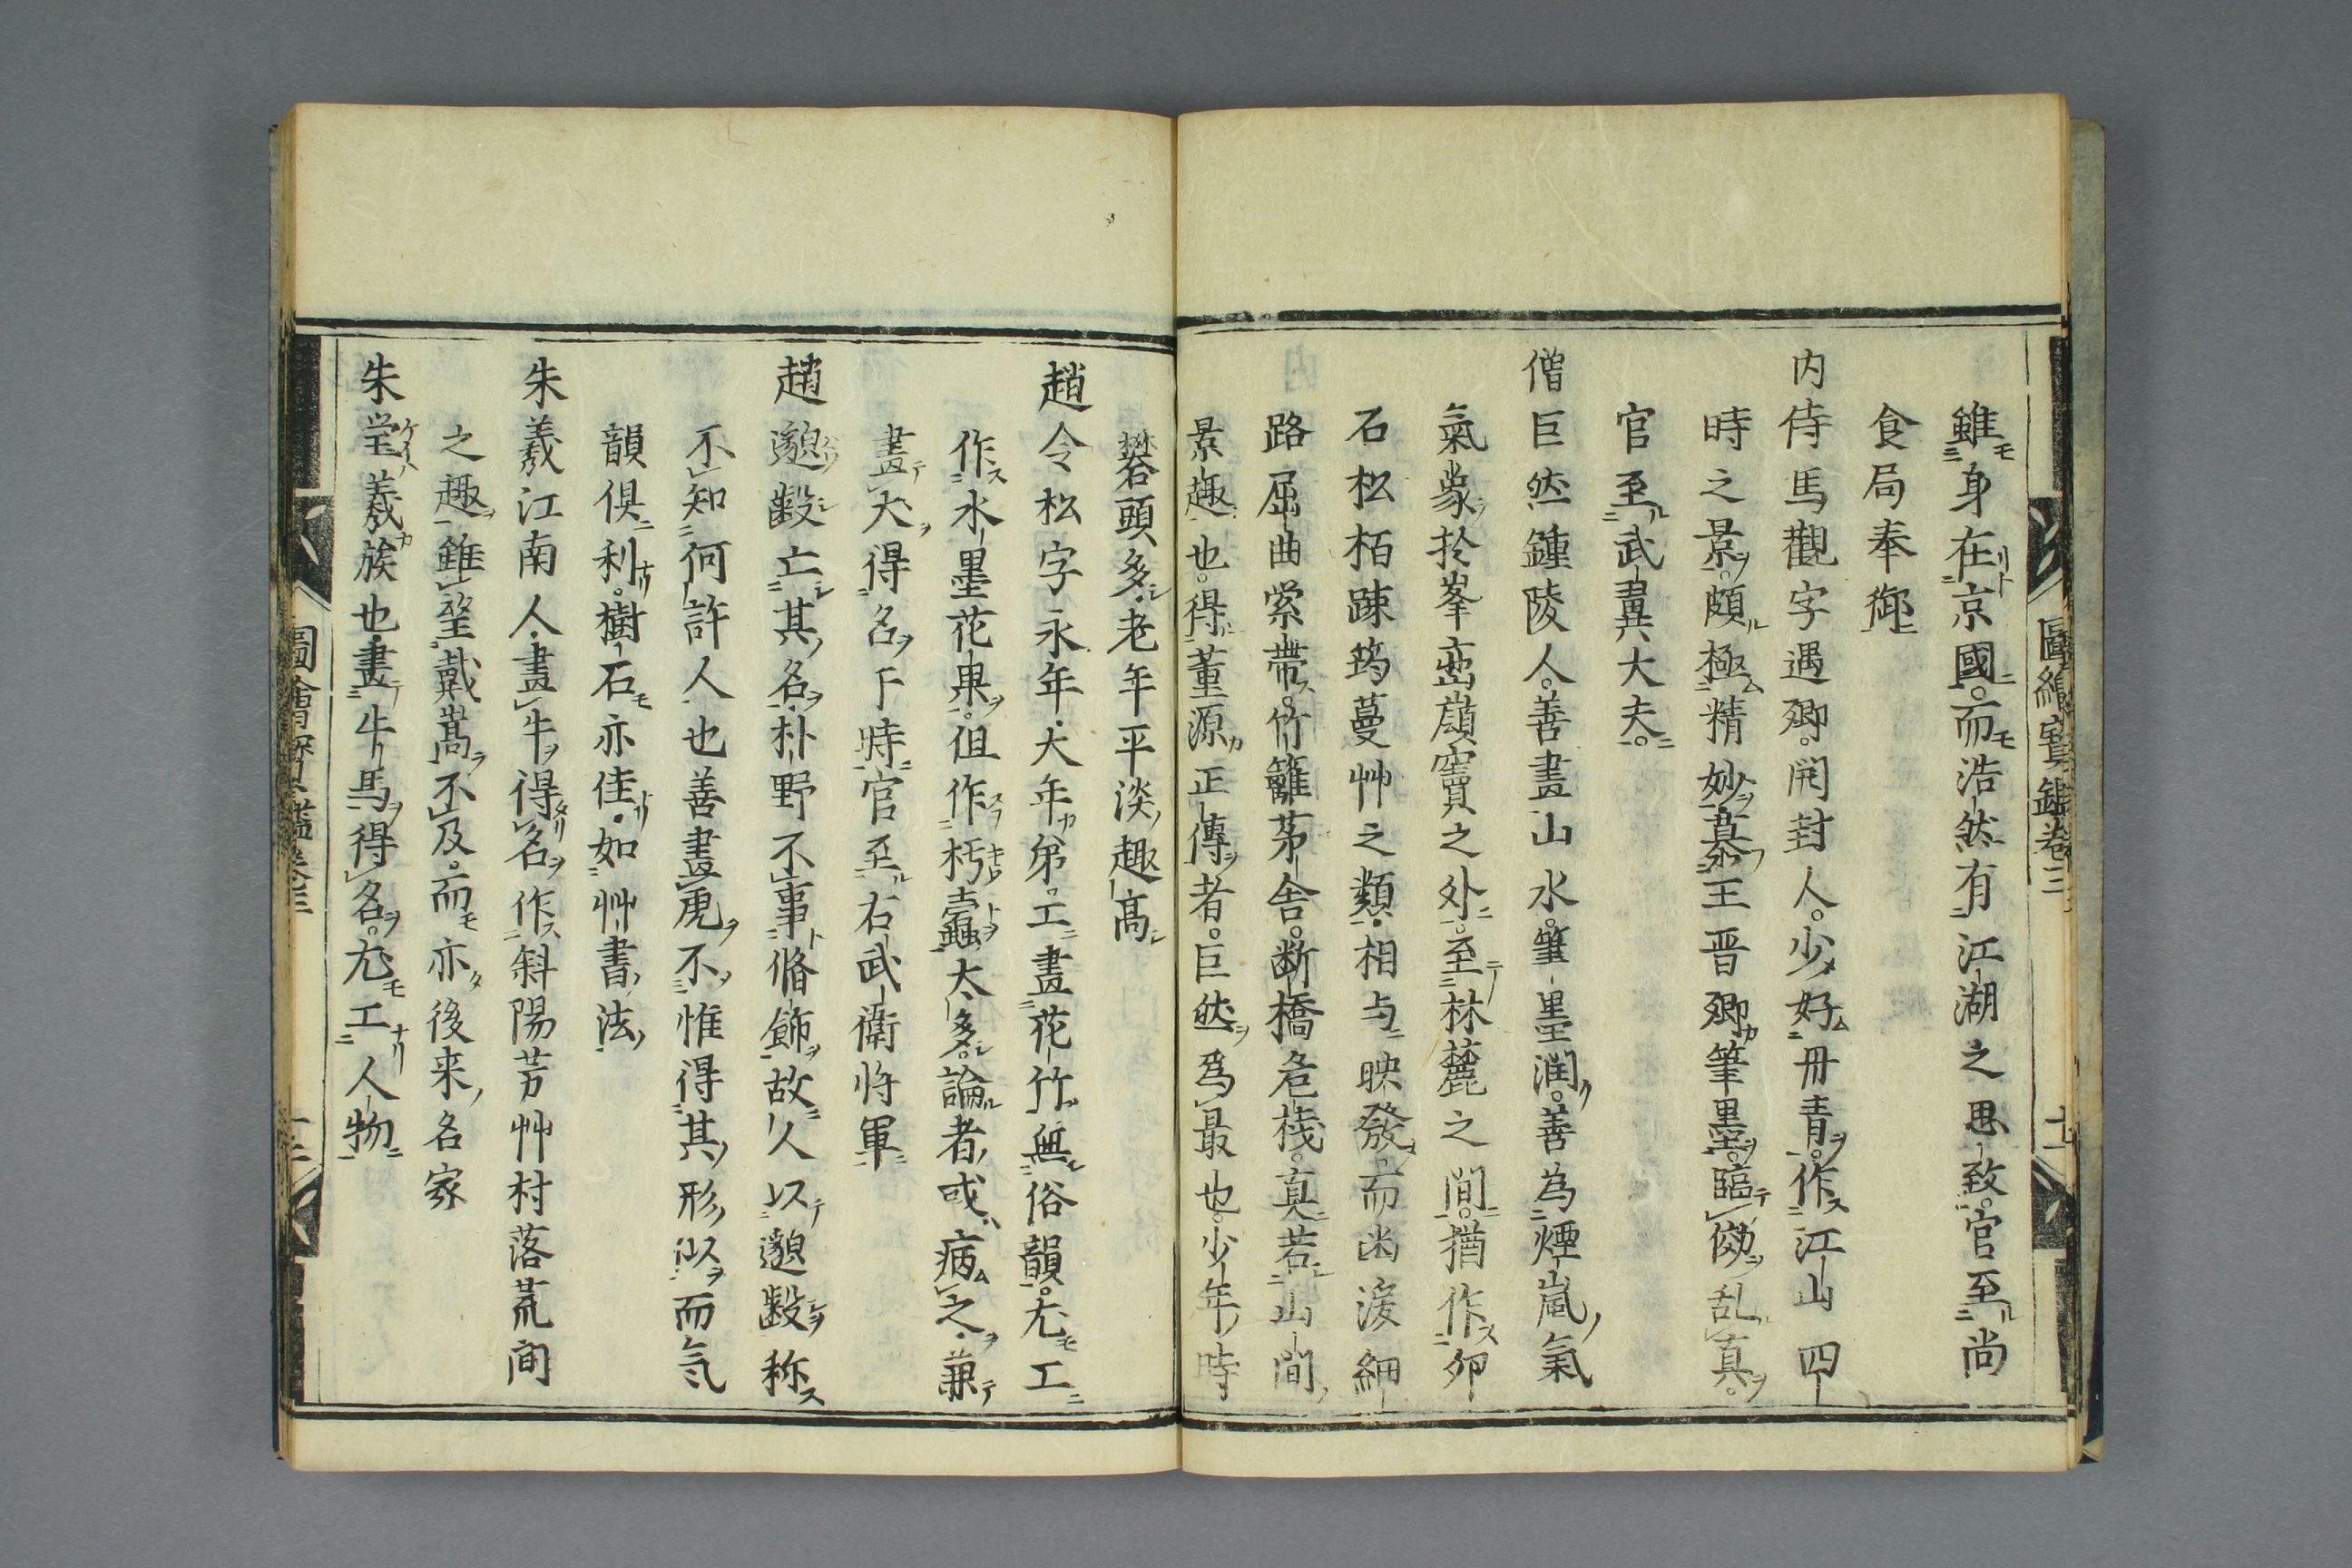 圖繪寳鑑卷三
十二
雖身在京國。而浩然有江湖之思致。官至尚
食局奉御
内侍馬觀字遇卿。開封人。少好丹青。作江山四
時之景。頗極精妙。慕王晋卿筆墨。臨倣乱真。
官至武翼大夫。
僧巨然鍾陵人。善畫山水。筆墨潤。善為煙嵐氣
氣象於峯巒嶺竇之外。至林麓之間。猶作卵
石松栢踈筠蔓艸之類。相与映發。而幽深細
路屈曲縈帶。竹籬茅舍。断橋危棧。真若山間
景趣也。得董源正傳者。巨然為最也。少年時
礬頭多。老年平淡趣高
趙令松字永年。大年弟。工畫花竹無俗韻。尤工
作水墨花果。但作朽蠹太多。論者或病之。兼
畫犬得名于時官至右武衛将軍
趙邈齪亡其名。朴野不事脩飾故人以邈齪称
不知何許人也善畫虎不惟得其形似而气
韻俱利。樹石亦佳。如艸書法
朱羲江南人。畫牛得名作斜陽芳艸村落荒间
之趣雖望戴嵩不及。而亦後来名家
朱瑩羲族也畫牛馬得名。尤工人物
圖繪寳鑑卷三
十二